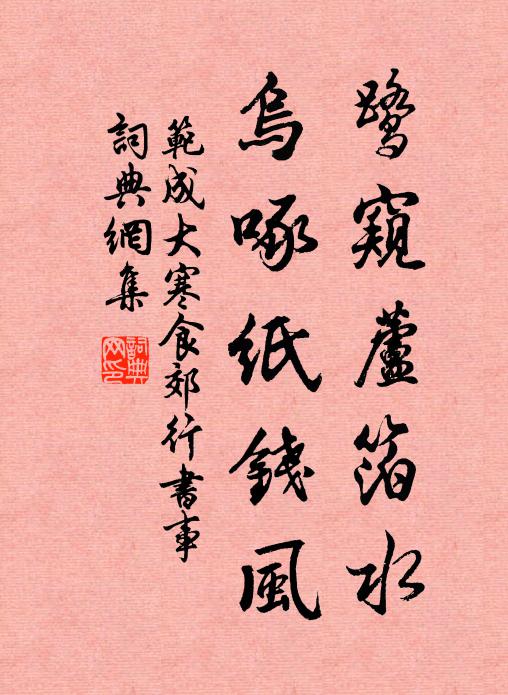 鷺窺蘆箔水
烏啄紙錢風
範成大寒食郊行書事
詞典網集
詞典網印